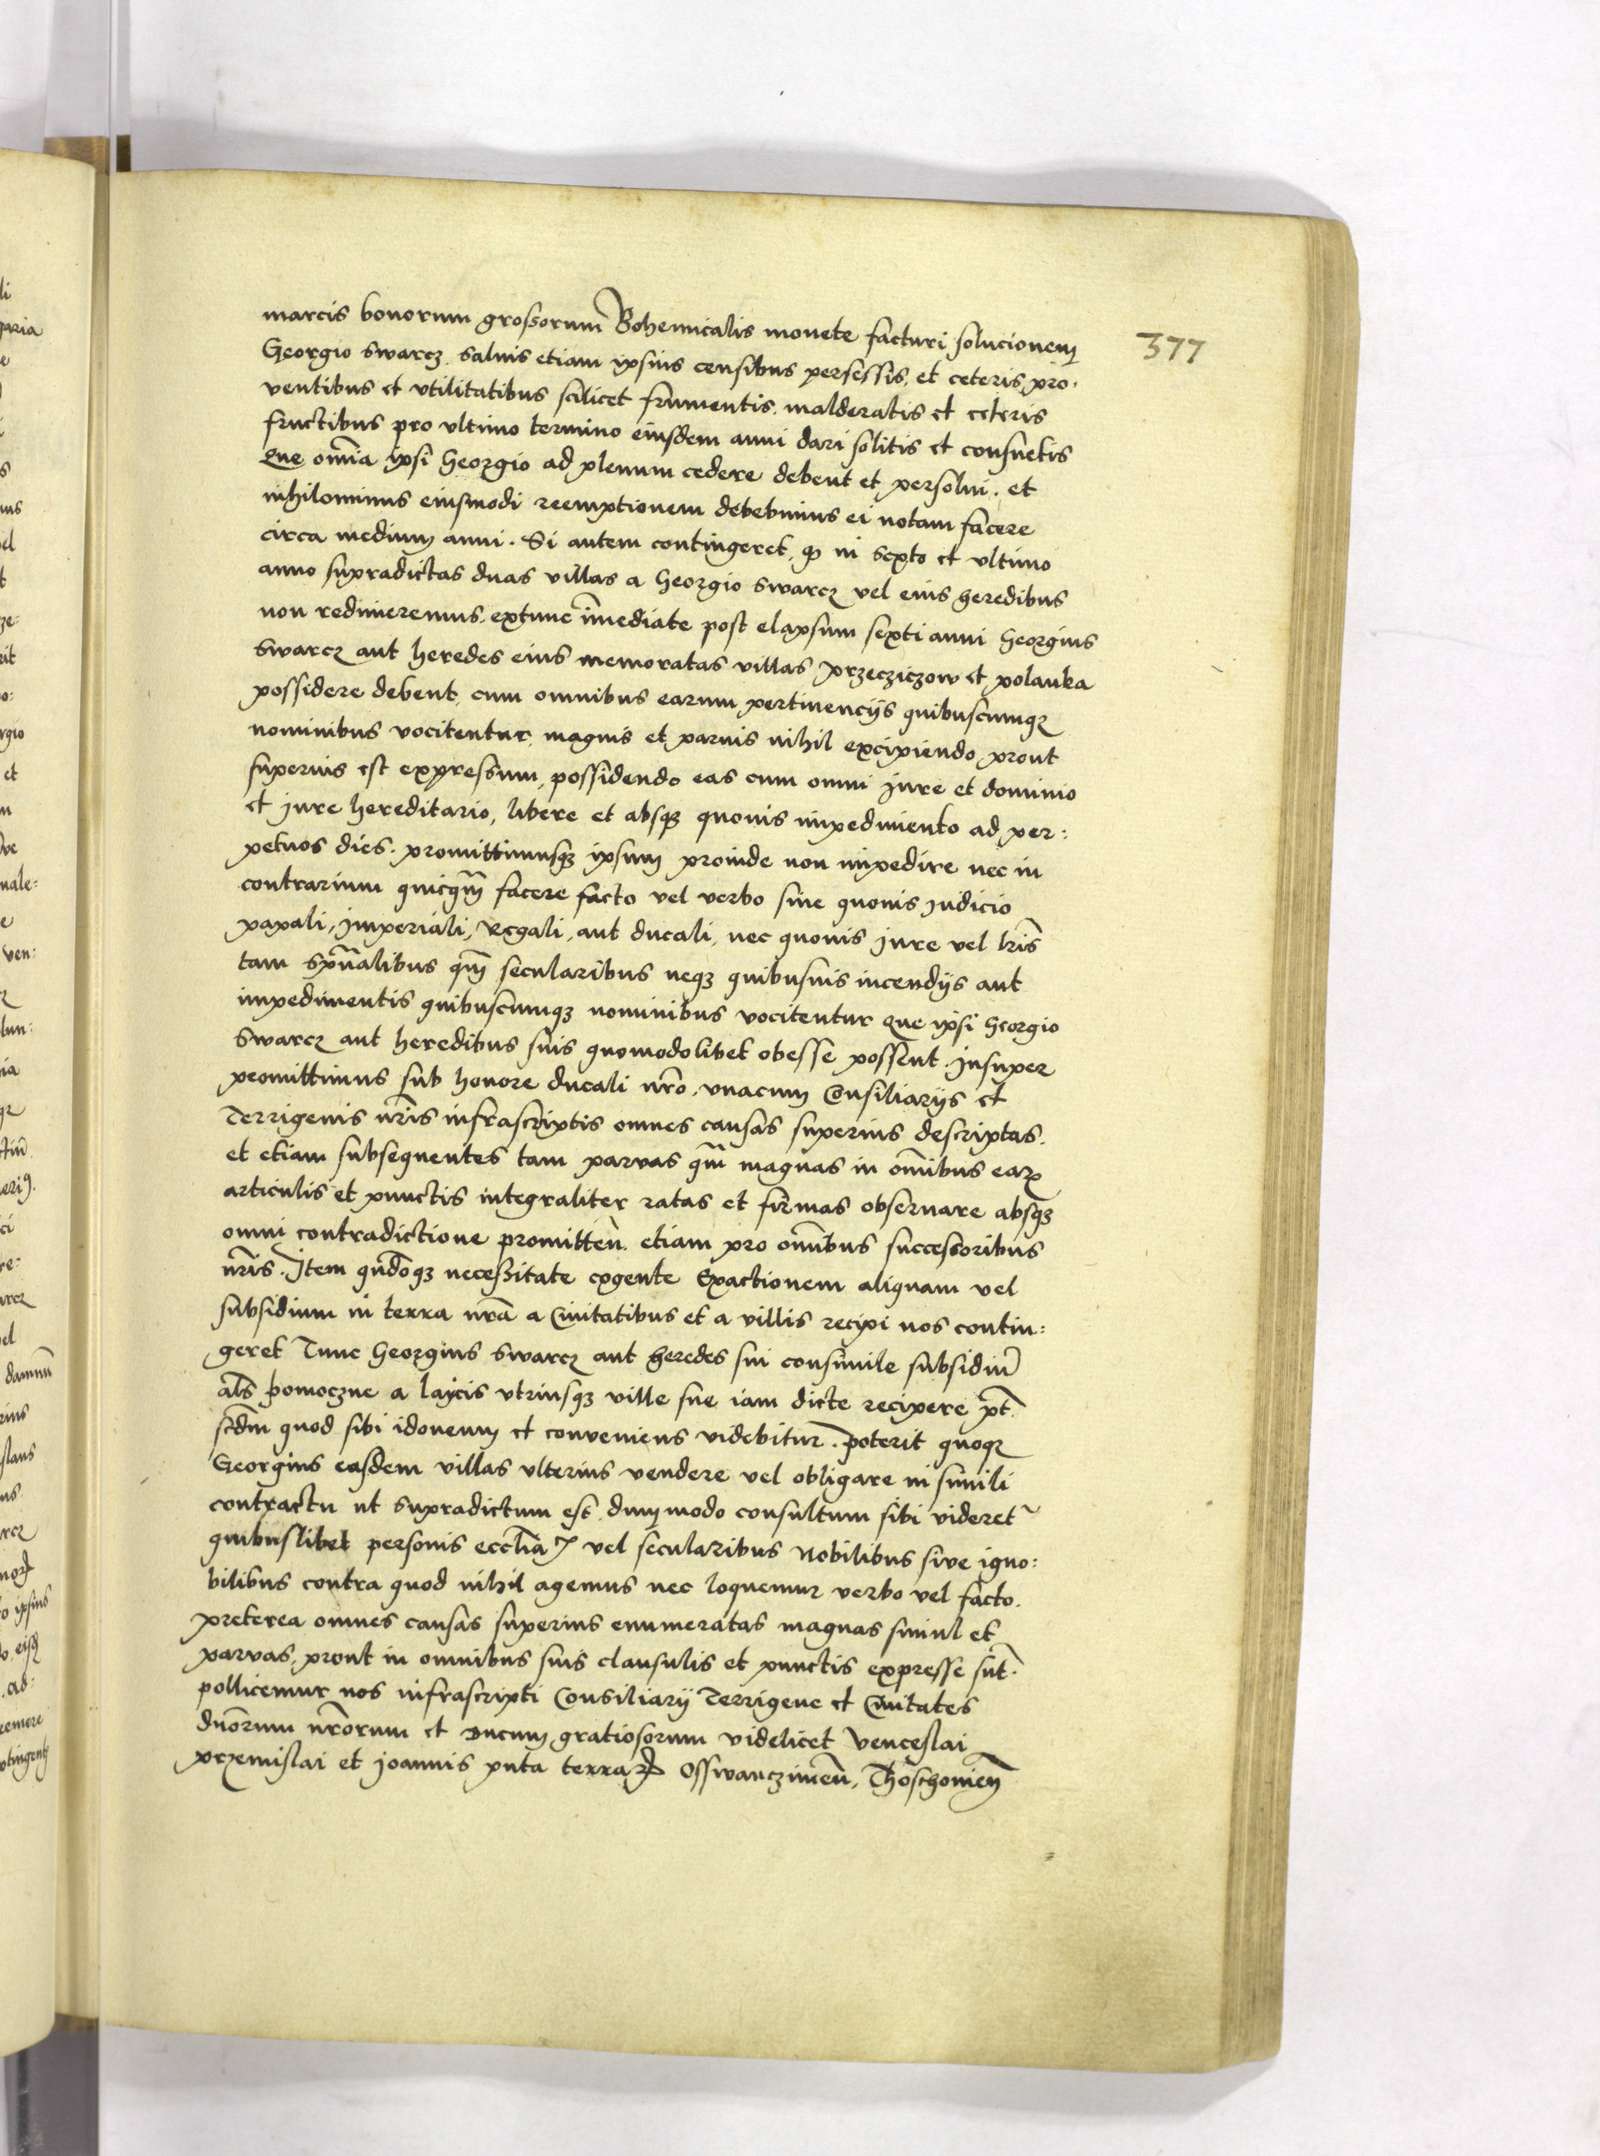 377
marcis bonorum grossorum Bohemicalis monete facturi solucionem
Georgio Swarcz salvis etiam ipsius censibus persessis, et ceteris pro-
ventibus et utilitatibus scilicet frumentis, malderatis et ceteris
fructibus pro ultimo termino eiusdem anni dari solitis et consuetis
Que om̄ia ipsi Georgio ad plenum cedere debent et persolvi, et
nihilominus eiusmodi reemptionem debebimus ei notam facere
circa medium anni. Si autem contingeret, q̄ in sexto et ultimo
anno supradictas duas villas a Georgio Swarcz vel eius heredibus
non redimeremus, extunc im̄ediate post elapsum sexti anni Georgius
Swarcz aut heredes eius memoratas villas Przecziczow et Polanka
possidere debent, cum omnibus earum pertinencijs quibuscumqꝫ
nominibus vocitentur, magnis et parvis nihil excipiendo, prout
superius est expressum, possidendo eas cum omni jure et dominio
et jure hereditario, libere et absqꝫ quovis impedimento ad per:
petuos dies. promittimusqꝫ ipsum proinde non impedire nec in
contrarium quicqm̄ facere facto vel verbo sine quovis Judicio
papali, Imperiali, Regali, aut ducali, nec quovis jure vel lr̄is
tam sp̄ualibus qm̄ secularibus neqꝫ quibusvis incendijs aut
impedimentis quibuscumqꝫ nominibus vocitentur que ipsi Georgio
Swarcz aut heredibus suis quomodolibet obesse possent. Insuper
promittimus sub honore ducali nr̄o, unacum Consiliarijs et
Terrigenis nr̄is infrascriptis omnes causas superius descriptas,
et etiam subsequentes tam parvas qm̄ magnas in om̄ibus earꝝ
articulis et punctis integraliter ratas et firmas observare absqꝫ
omni contradictione promitten̄. etiam pro om̄ibus successoribus
nr̄is. Item qn̄doqꝫ necessitate cogente Exactionem aliquam vel
subsidium in terra nr̄a a Civitatibus et a villis recipi nos contin:
geret Tunc Georgius Swarcz aut heredes sui consimile subsidiū
al̄s pomoczne a laycis utriusqꝫ ville sue iam dicte recipere pt̄.
scd̄m quod sibi idoneum et conveniens videbitur. poterit quoqꝫ
Georgius easdem villas ulterius vendere vel obligare in simili
contractu ut supradictum est, dummodo consultum sibi videret~
quibuslibet personis eccl̄iaꝝ vel secularibus Nobilibus sive igno:
bilibus contra quod nihil agemus nec loquemur verbo vel facto.
preterea omnes causas superius enumeratas magnas simul et
parvas, prout in omnibus suis clausulis et punctis expresse sūt.
pollicemur nos infrascripti Consiliarij Terrigene et Civitates
dn̄orum nr̄orum et Ducum gratiosorum videlicet Venceslai
przemislai et joannis pn̄ta terraꝝ Osswanczimen̄, Thoschonien̄